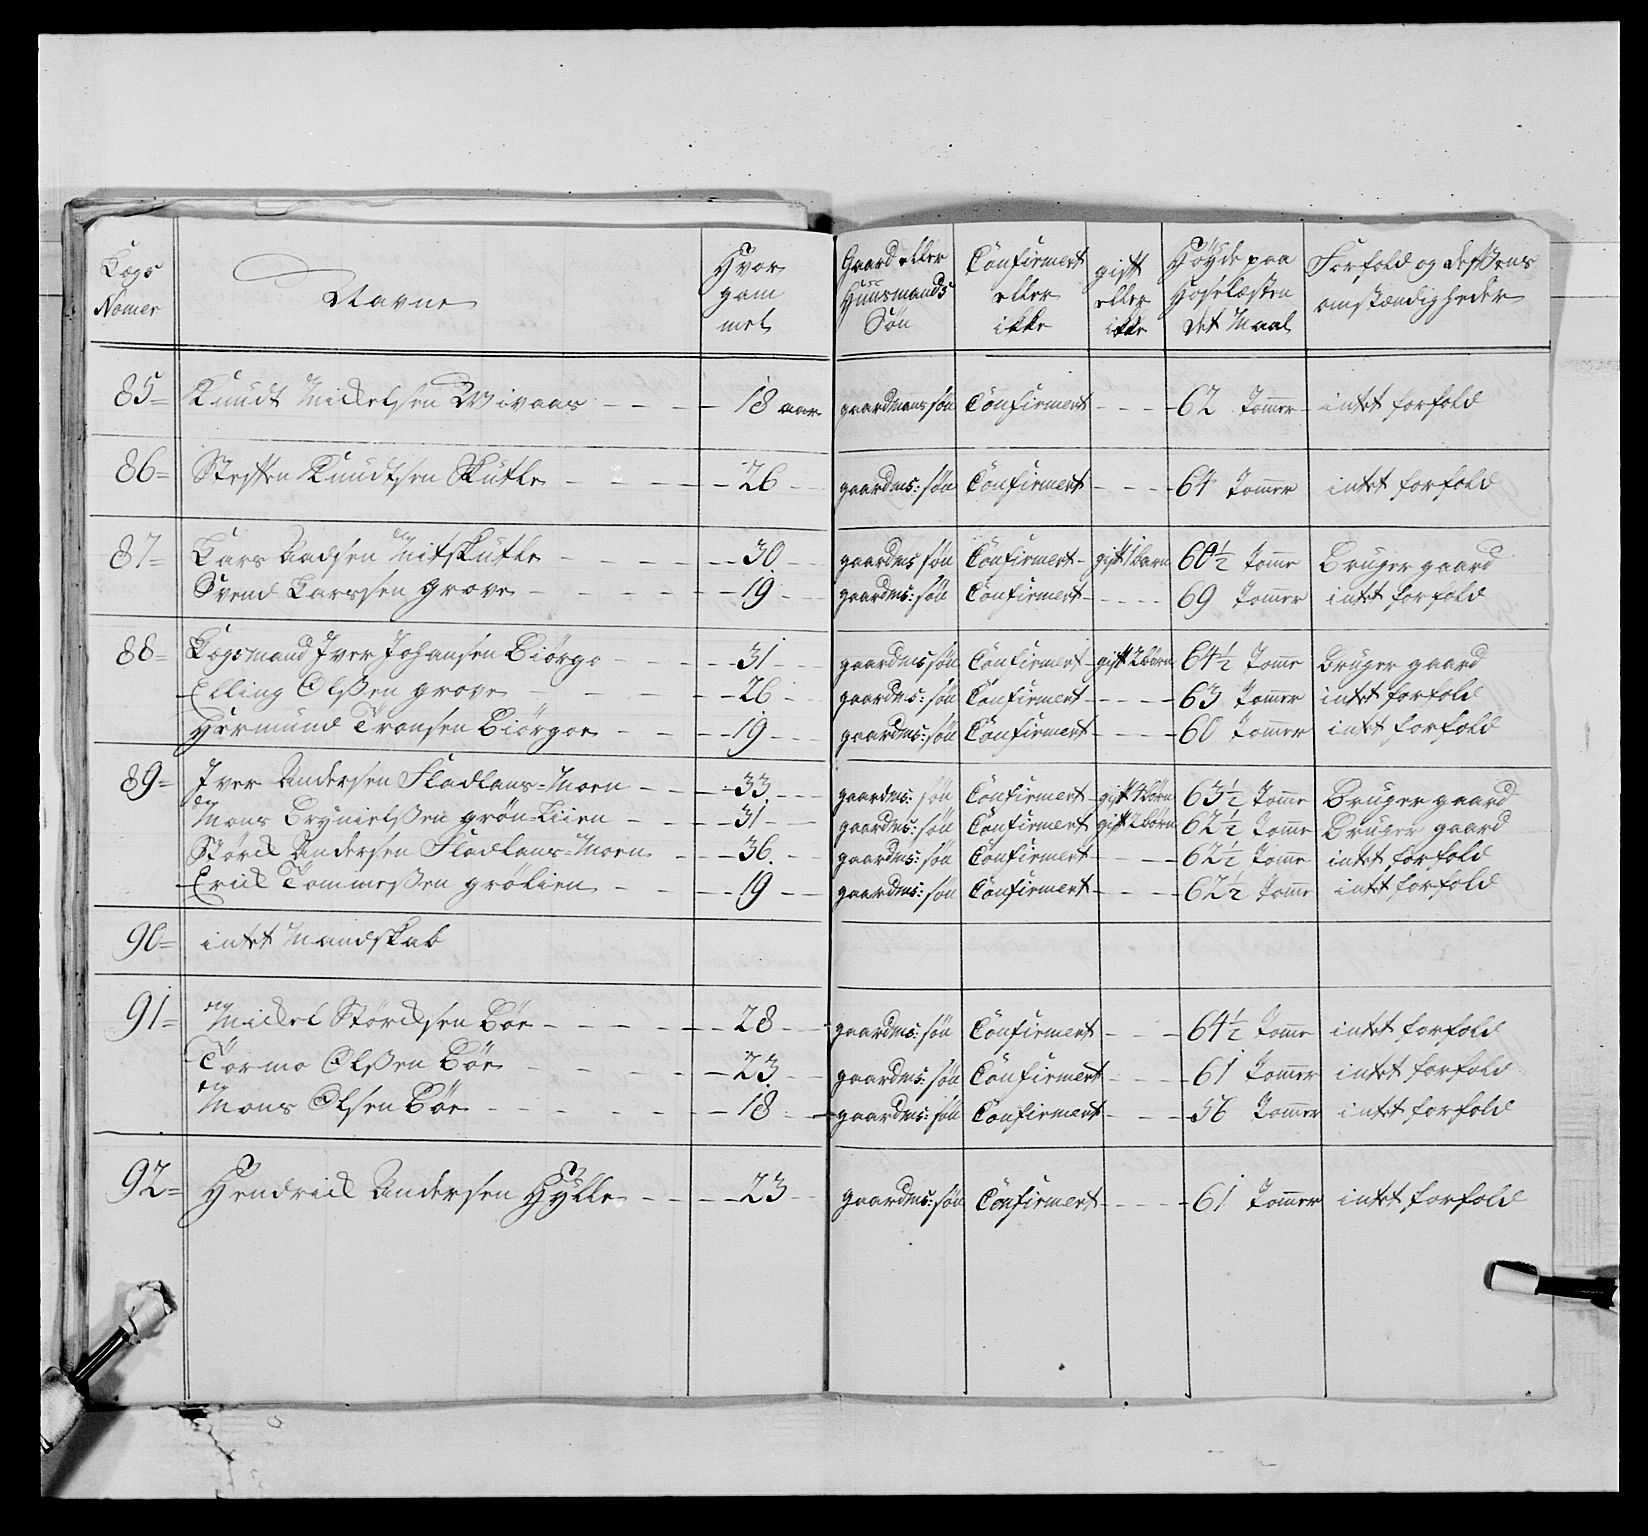 Lægs Nomer | Navne | Hvor gam mel | Gaard eller Huusmands Søn | Confirmert eller ikke | gift eller ikke | Høyde paa Hoselæsten det Maal | Forfold og dessens omstændigheder
85= Knudt Mickelsen Wivaas - - - - 18 aar gaardmans søn Confirmert - - - 62 Tomer - intet forfold
86= Steffen Knudtsen Skutle - - - - 26 - gaardms: søn Confirmert - - - 64 Tomer intet forfold
87= Lars Aadsen Mitskutle - - - - 30 - gaardms søn Confirmert - gift 1 barn 60½ Tome Bruger gaard
Svend Larssen grove - - - - 19 - gaardms: søn Confirmert - - - 69 Tomer intet forfold
88= Lægsmand Iver Johansen Biørgo - - - 31 - gaardms søn Confirmert - gift 2 børn 64½ Tome Bruger gaard
Elling Olssen grove - - - - 26 - gaardms: søn Confirmert - - - 63 Tomer intet forfold
Hermund Tronsen Biørgoe - - - 19 - gaardms: søn Confirmert - - - 60 Tomer intet forfold
89= Iver Andersen Fladlans=Moen - - - 33 - gaardms: søn Confirmert - gift 4 børn 63½ Tome Bruger gaard
Mons Brynielssen grøn=Liien - - - 31 - gaardms: søn Confirmert gift 2 børn 62½ Tome Bruger gaard
Størck Andersen Fladlans=Moen - - 36 - gaardms: søn Confirmert - - - 62½ Tome intet forfold
Erick Tommessen grølien - - - 19 - gaardms: søn Confirmert - - - 62½ Tome intet forfold
90= intet Mandskab
91= Mickel Størcksen Bøe - - - - 28 - gaardms: søn Confirmert - - - 64½ Tome intet forfold
Tormo Olssen Bøe - - - - 23 - gaardms: søn Confirmert - - - 61 Tomer intet forfold
Mons Olsen Bøe - - - - 18 - gaardms: søn Confirmert - - - 56 Tomer intet forfold
92= Hendrick Andersen Hylle - - - 23 - gaardms: søn Confirmert - - - 61 Tomer intet forfold